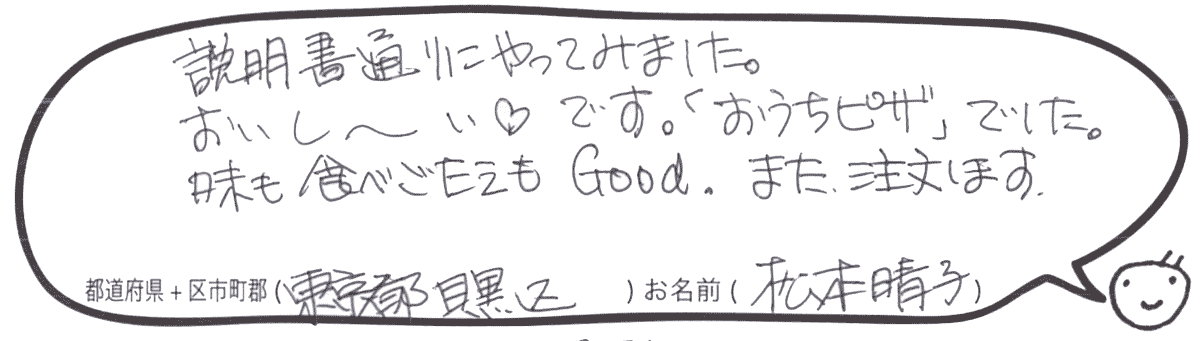 説明書通りにやってみました。
おいし〜い♡です。「おうちピザ」でした。
味も食べごたえもGood. また、注文します.
都道府県+区市町郡(東京都目黒区)お名前(松本晴子)